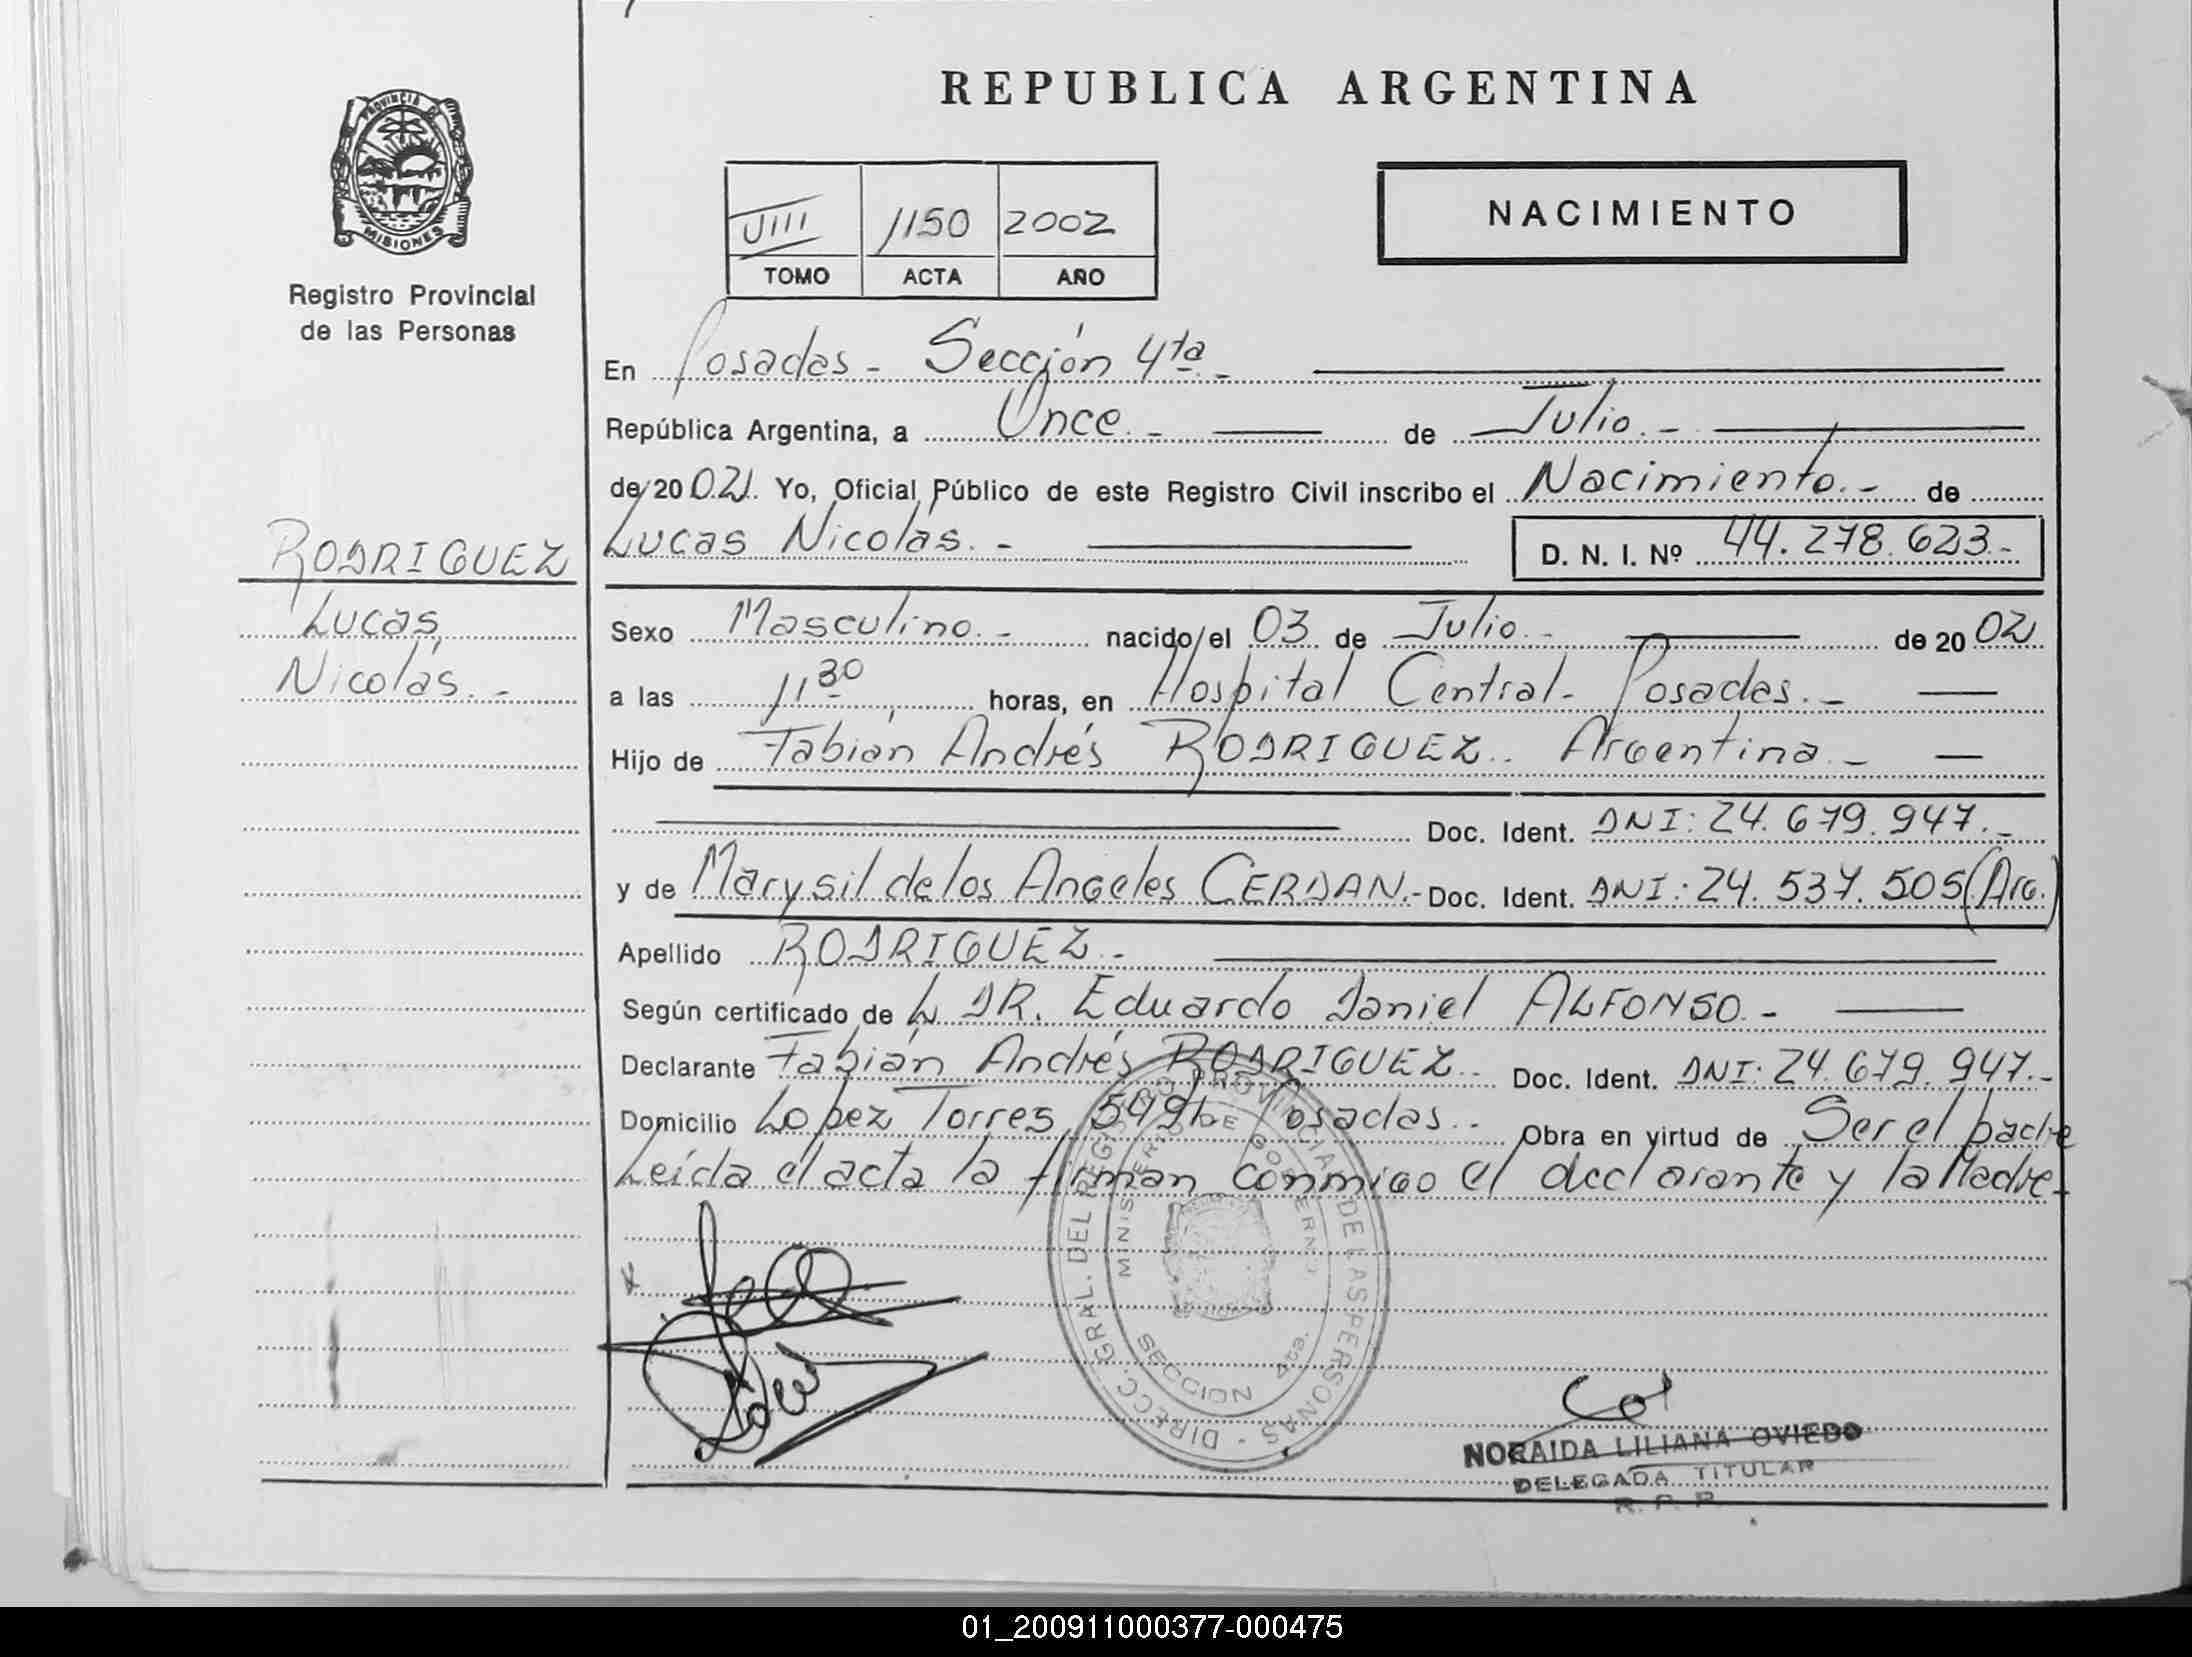 REPUBLICA ARGENTINA
PROVINCIA DE
MISIONES
Registro Provincial
de las Personas
VIII 1150 2002
TOMO ACTA AÑO
NACIMIENTO
RODRIGUEZ
Lucas
Nicolás.-
En Posadas - Sección 4ta.-
República Argentina, a Once.- de Julio.-
de 2002. Yo, Oficial Público de este Registro Civil inscribo el Nacimiento.- de
Lucas Nicolás.- D. N. I. Nº 44.278.623.-
Sexo Masculino.- nacido el 03 de Julio.- de 2002
a las 11 30 horas, en Hospital Central- Posadas.-
Hijo de Fabián Andrés RODRIGUEZ.. Argentina.-
Doc. Ident. DNI: 24.679.947.-
y de Marysil de los Angeles CERDAN.- Doc. Ident. DNI: 24.537.505 (Arg.)
Apellido RODRIGUEZ.-
Según certificado de L DR. Eduardo Daniel ALFONSO.-
Declarante Fabián Andrés RODRIGUEZ.. Doc. Ident. DNI: 24.679.947.-
Domicilio Lopez Torres Posadas.- Obra en virtud de Ser el padre
Leída el acta la firman conmigo el declarante y la Madre-
DIRECC. GRAL. DEL REGISTRO PROVINCIAL DE LAS PERSONAS -
MINISTERIO DE GOBIERNO
SECCION 4ta.
NORAIDA LILIANA OVIEDO
DELEGADA TITULAR
R. P. P.
01_200911000377-000475